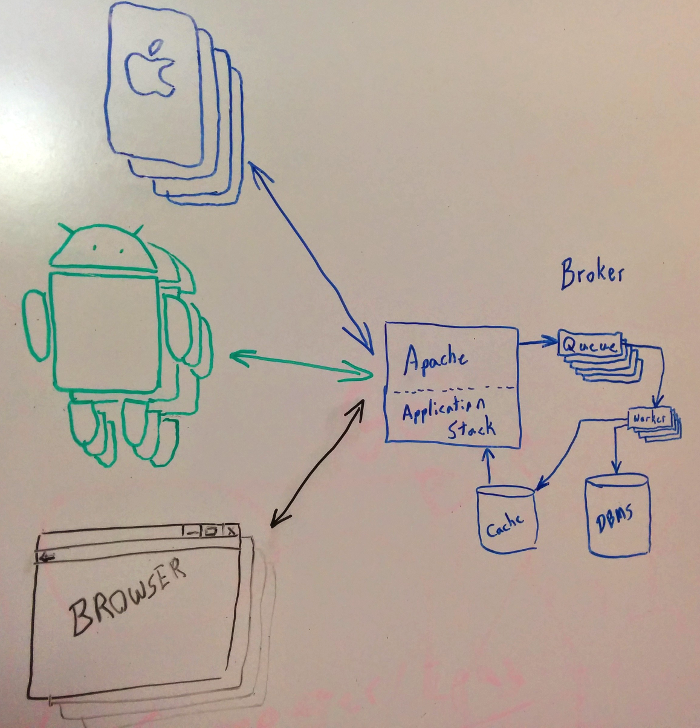 Broker
Apache
Queue
Application
Stack
Worker
Cache
DBMS
BROWSER